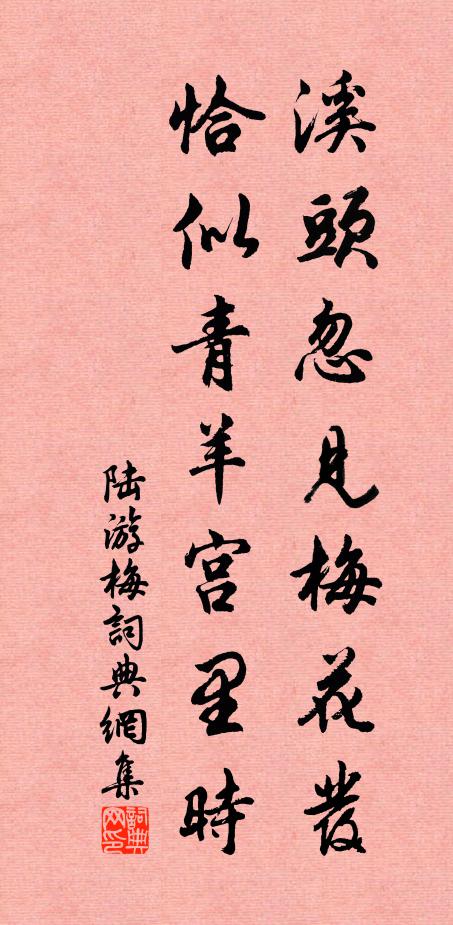 溪頭忽見梅花發
恰似青羊宮里時
陆游梅詞典網集
詞典网印